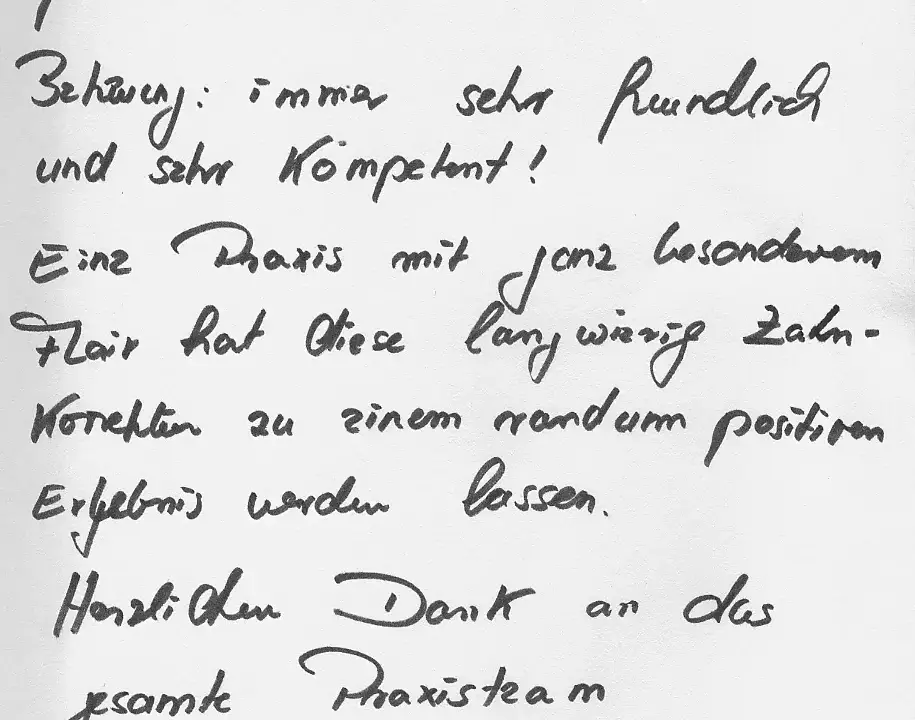 Betreuung: immer sehr freundlich
und sehr Kompetent!
Eine Praxis mit ganz besonderem
Flair hat diese langwierig Zahn-
Korrektur zu einem rundum positiven
Ergebnis werden lassen.
Herzlichen Dank an das
gesamte Praxisteam